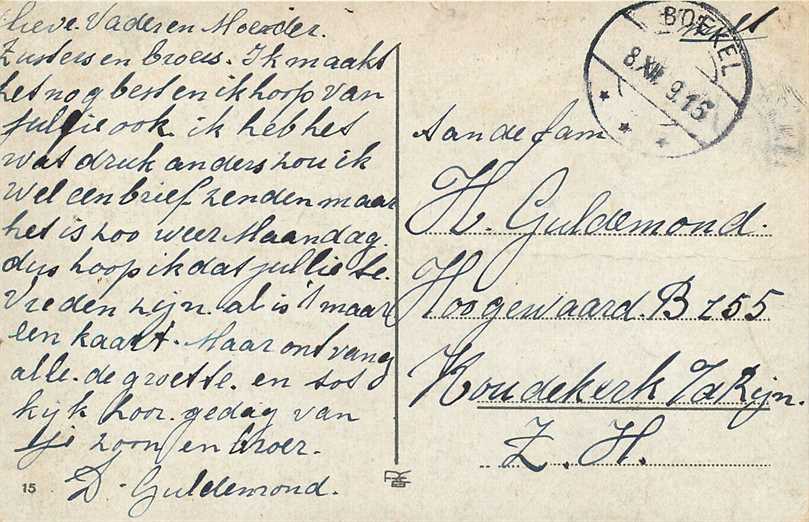 Lieve. Vader en Moeder.
Zusters en broers. Ik maak't
het nog best en ik hoop van
jullie ook. ik heb het
wat druk anders zou ik
wel een brief zenden maar
het is zoo weer Maandag.
dus hoop ik dat jullie te.
Vreden zijn. al is 't maar
een kaart. Maar ontvang
alle. de groette. en tot
kijk hoor. gedag van
zoon en broer.
D. Guldemond.
15
BOEKEL
8.XII. 9.15
Aan de fam
H. Guldemond.
Hoogewaard. B 155
Koudekerk a/d Rijn.
Z. H.